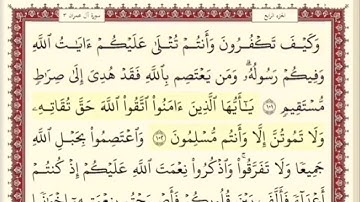 الجزء الرابع
سورة آل عمران ٣
وَكَيْفَ تَكْفُرُونَ وَأَنتُمْ تُتْلَىٰ عَلَيْكُمْ ءَايَٰتُ ٱللَّهِ
وَفِيكُمْ رَسُولُهُۥ ۗ وَمَن يَعْتَصِم بِٱللَّهِ فَقَدْ هُدِىَ إِلَىٰ صِرَٰطٍ
مُّسْتَقِيمٍ ١٠١ يَٰٓأَيُّهَا ٱلَّذِينَ ءَامَنُوا۟ ٱتَّقُوا۟ ٱللَّهَ حَقَّ تُقَاتِهِۦ
وَلَا تَمُوتُنَّ إِلَّا وَأَنتُم مُّسْلِمُونَ ١٠٢ وَٱعْتَصِمُوا۟ بِحَبْلِ ٱللَّهِ
جَمِيعًا وَلَا تَفَرَّقُوا۟ ۚ وَٱذْكُرُوا۟ نِعْمَتَ ٱللَّهِ عَلَيْكُمْ إِذْ كُنتُمْ
أَعْدَآءً فَأَلَّفَ بَيْنَ قُلُوبِكُمْ فَأَصْبَحْتُم بِنِعْمَتِهِۦٓ إِخْوَٰنًا